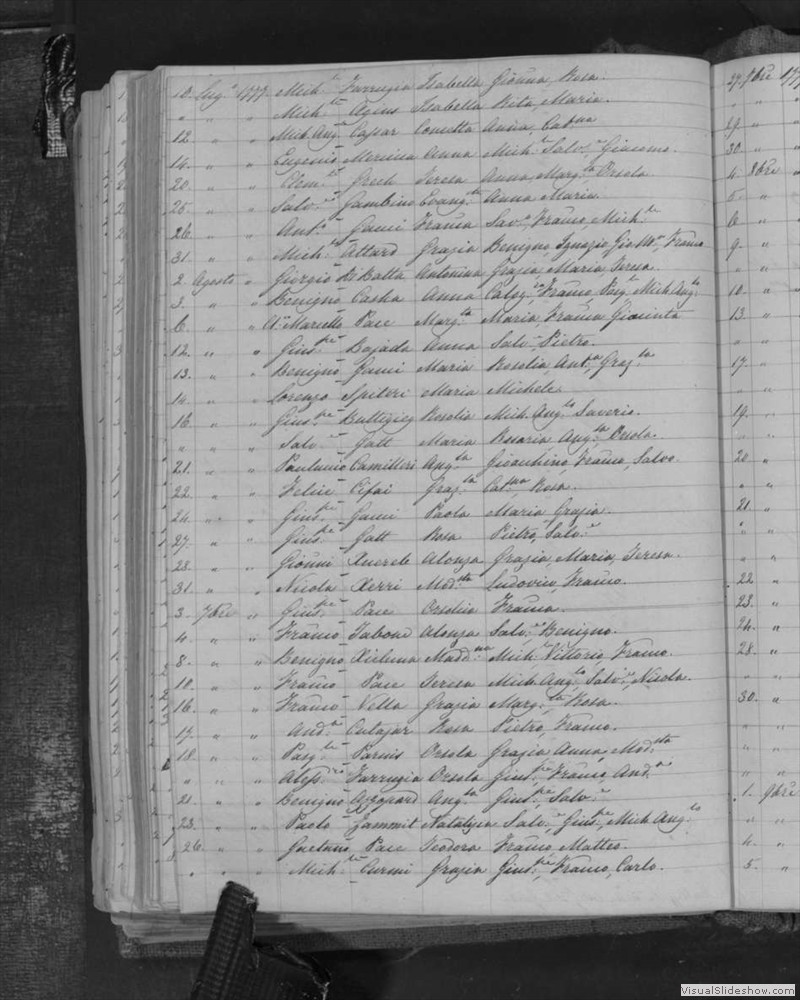 10. Lug.o 1777. Mich.le Farrugia Isabella Giõnna, Rosa.
" " " Mich.le Agius Isabella Rita, Maria.
12 " " Mich. Ang.o Cassar Conetta Anna, Cat.na
14. " " Eugenio Mercieca Anna Mich.le Salv.e, Giacomo.
20. " " Clem.te Grech Teresa Anna, Marg.ta Orsola
25. " " Salv.e Gambino Evang.ta Anna Maria.
26. " " Ant.o Gauci Franca Sav.o, Franco, Mich.le
31. " " Mich.le Attard Grazia Benigno, Ignazio, Gio M., Franco
2. Agosto " Giorgio Di Batta Antonina Grazia, Maria, Teresa.
3. " " Benigno Casha Anna Calog.ro, Franco, Pasq.le Mich. Ang.lo
6. " " Pace Marg.ta Maria, Franca Giacinta
12. " " Gius.pe Bajada Anna Salv.e Pietro.
13. " " Benigno Gauci Maria Rosolia Ant.a, Graz.ia
14. " " Lorenzo Spiteri Maria Michele
16. " " Gius.pe Buttigieg Rosolia Mich. Ang.lo Saverio.
" " " Salv.e Gatt Maria Rosaria Ang.la Orsola.
21. " " Paolunio Camilleri Ang.la Gioachino, Franco, Salvo.
22. " " Felice Cifai Graz.ia Cat.na, Rosa.
24. " " Gius.pe Gauci Paola Maria Grazia.
27. " " Gius.pe Gatt Rosa Pietro, Salv.e
28. " " Giõnni Xuereb Alonza Grazia, Maria, Teresa.
31. " " Nicola Xerri Mod.sta Ludovico, Franco.
3. 7bre " Gius.pe Pace Orsolia Franca.
4. " " Franco Tabone Alonza Salv.e Benigno.
8. " " Benigno Xicluna Madd.na Mich.le Vittorio, Franco.
10. " " Franco Pace Teresa Mich. Ang.lo Salv.e, Nicola.
16. " " Franco Vella Grazia Marg.ta Rosa.
17. " " And.a Cutajar Rosa Pietro, Franco.
18. " " Pasq.le Parnis Orsola Grazia Anna, Mod.sta
" " " Aless.ro Farrugia Orsola Gius.pe, Franco, And.a
21. " " Benigno Azzopard Ang.la Gius.pe, Salv.e
23. " " Paolo Zammit Natalizia Salv.e, Gius.pe, Mich. Ang.lo
26. " " Gaetano Pace Teodora Franco Matteo.
" " " Mich.le Curmi Grazia Gius.pe, Franco, Carlo.
27. 7bre 177
" "
29. "
30. "
4. 8bre
5. "
6 "
9. "
" "
10. "
13. "
" "
17. "
" "
19. "
" "
20 "
" "
21. "
" "
" "
22 "
23. "
24. "
28. "
" "
30. "
" "
" "
" "
1. 9bre
" "
4. "
5. "
VisualSlideshow.com